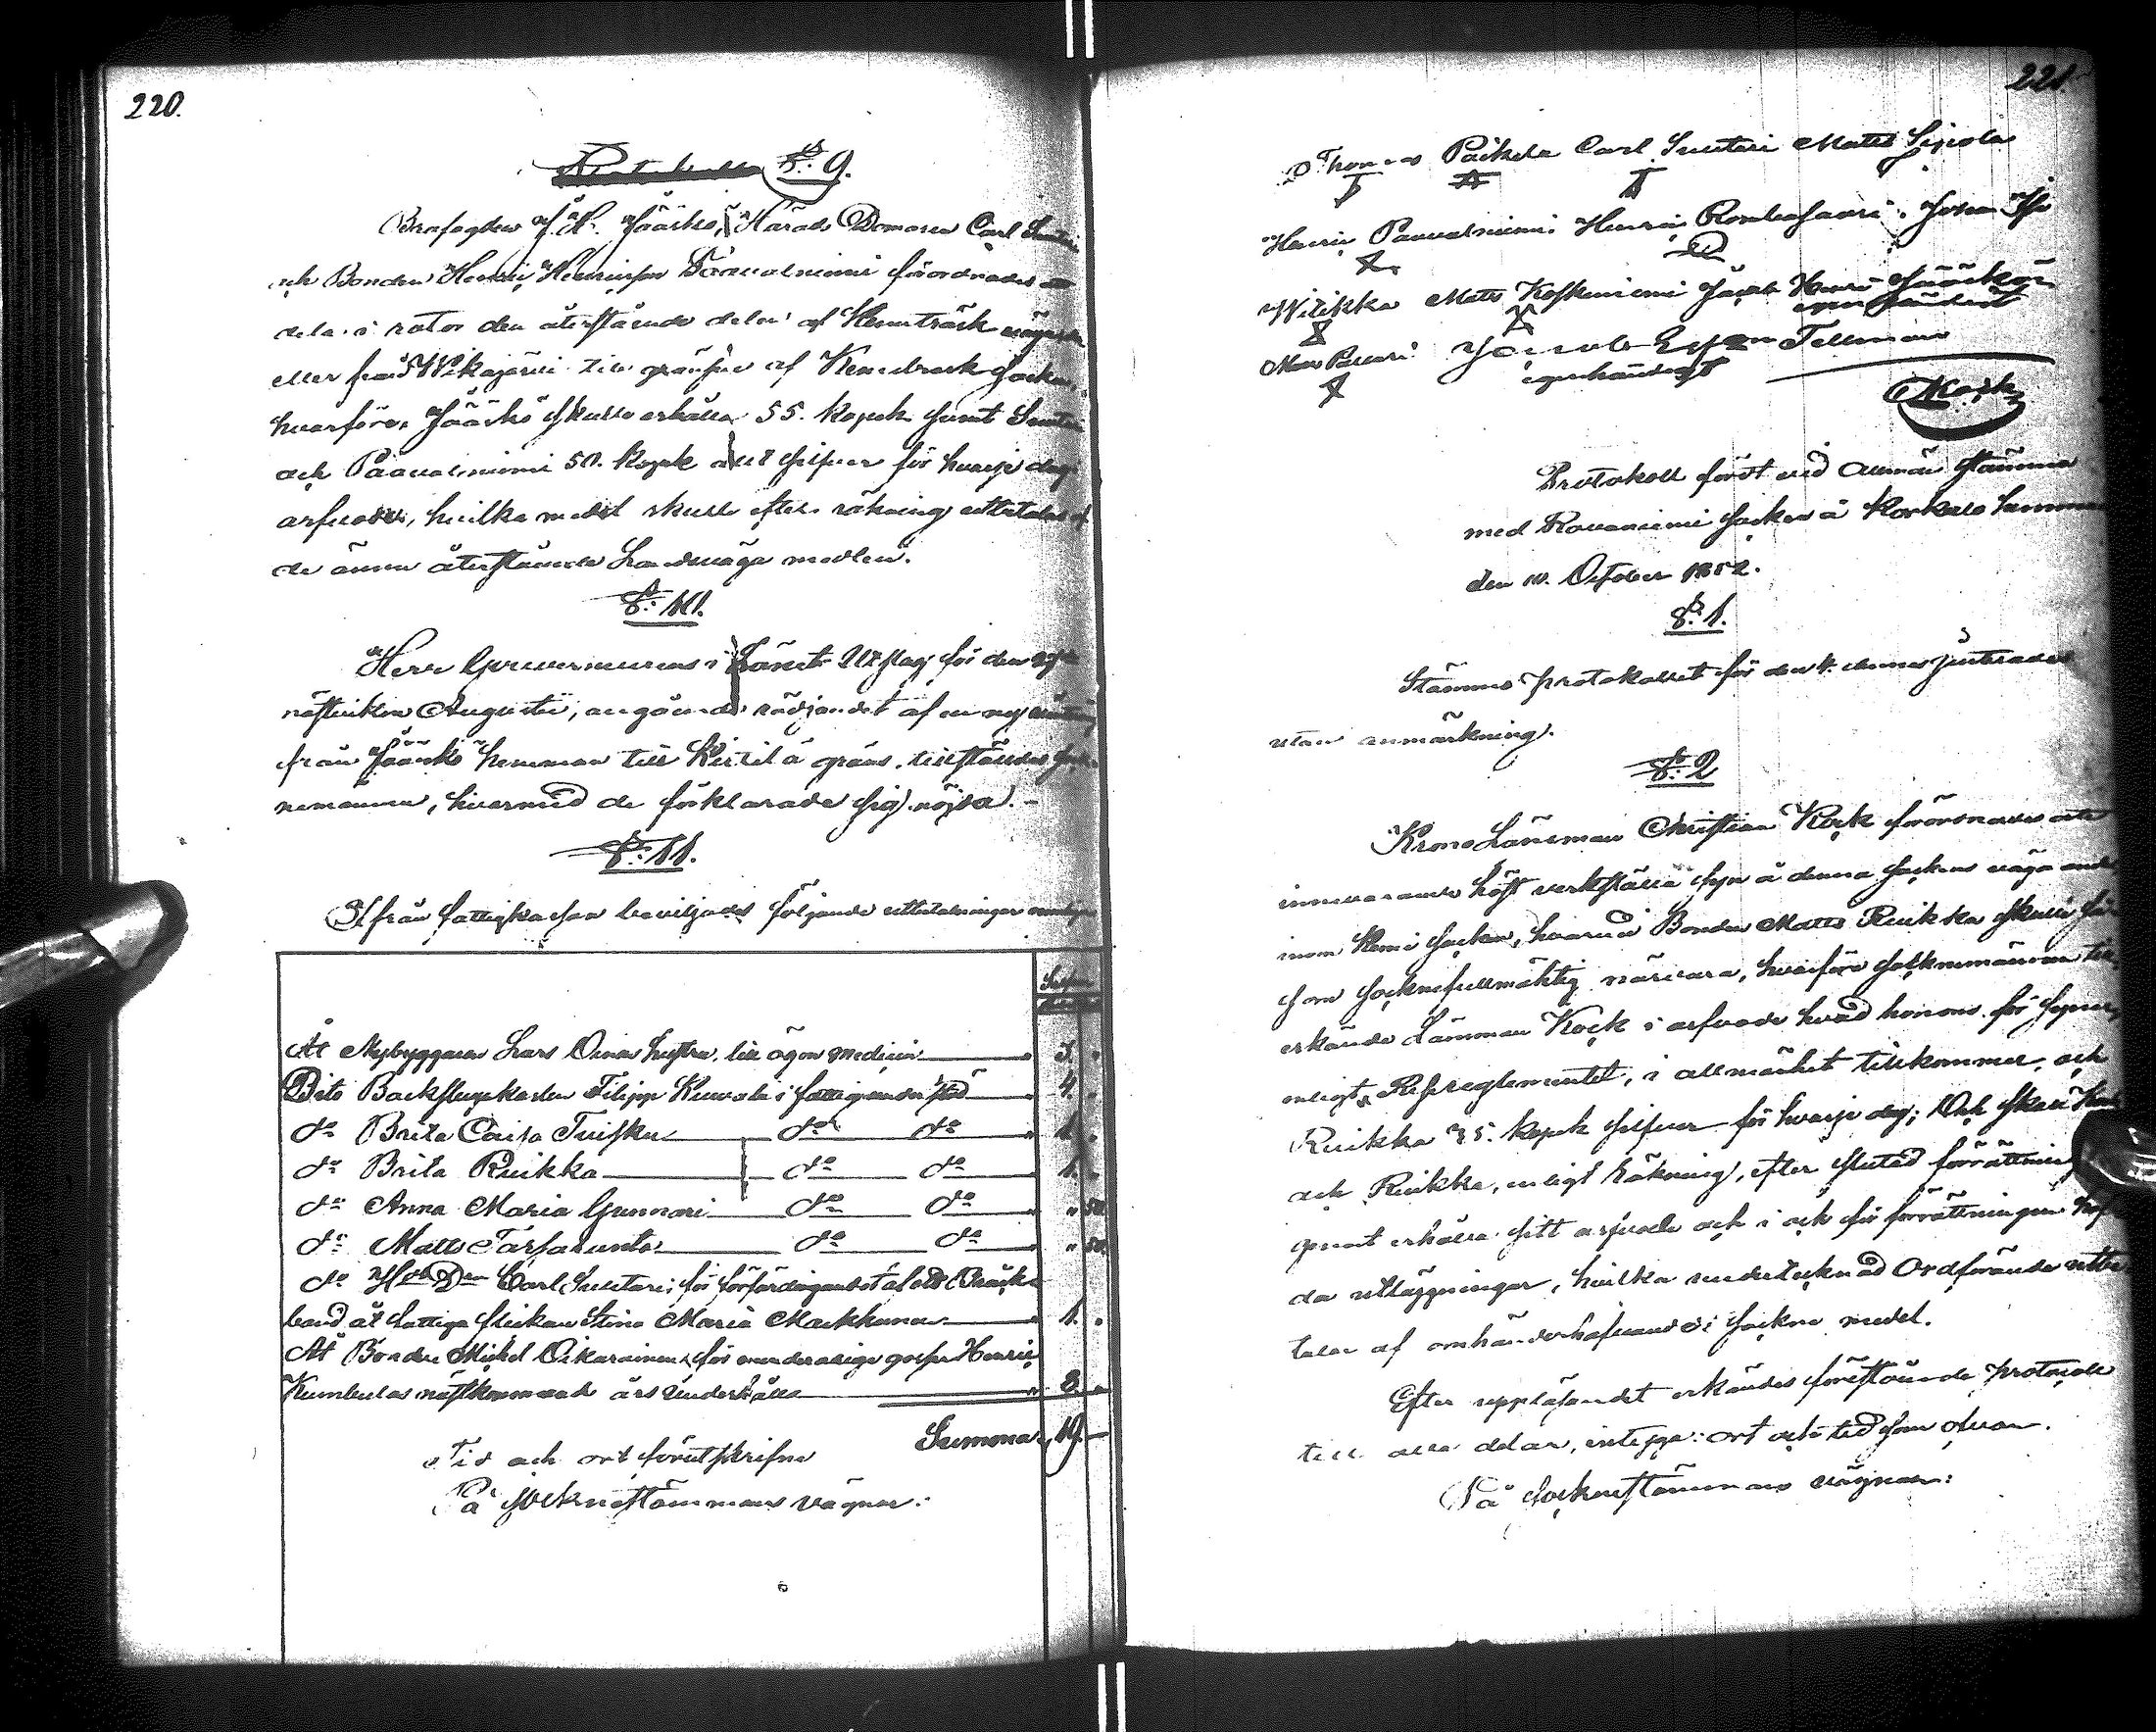 220.
§: 9.
Brofogden J. H. Jääskö, Härads Domaren Carl Suutari
och Bonden Henric Henricsson Paavalniemi förordnades att
dela i rotor den återstående delen af Kemiträsk vägen
eller från Wikajärvi till gränsen af Kemiträsk Socken,
hvarföre Jääskö skulle erhålla 55. kopek samt Suutari
och Paavalniemi 50. kopek allt silfver för hvarje dag
arfvode, hvilka medel skulle efter räkning utbetalas af
de ännu återstående Landsväga medlen.
§: 10.
Herr Gouverneurens i Länet Utslag för den
nästvikne Augusti, angående rödjandet af en ny
från Jääskö hemman till Kittilä gräns, tillställdes Sock-
nemännen, hvarmed de förklarade sig nöjda.-
§: 11.
Ifrån fattigkassan beviljades följande utbetalningar nemligen
Silfver
Åt Nybyggaren Lars Oinas hustru, till ögon medicin 3. "
Dito Backstugukarlen Filipp Kuuvala i fattigunderstöd 4. "
do Brita Caisa Tuisku do do 1. "
do Brita Ruikka do do 1. "
do Anna Maria Gunnari do do " 50.
do Matts Tarsarunta do do " 50.
do Hds Dn Carl Suutari, för förfärdigandet af ett Bråck-
band åt fattiga flickan Stina Maria Markkanen 1. "
Åt Bonden Michel Oikarainen, för omyndige gossen Henric
Kumbulas nästkommande års underhåll 8. "
Summa 19. —
Tid och ort förutskrifne
På Socknestämmans vägnar:
221.
Thomas Paikela Carl Suutari Matts Sipola
Henric Paavalniemi Henric Rombasaari Johan
Wiikka Matts Koskiniemi Jacob Henric Jääskö
egenhändigt
Mats Pallari Jacob Tellman
egenhändigt
Kock
Protokoll fördt vid allmän stämma
med Rovaniemi Socken å Korkalo hemman
den 10. October 1852.
§: 1.
Stämmo protokollet för den 4. dennes justerades
utan anmärkning.
§: 2
Krono Länsman Christian Kock förordnades att
innevarande höst verkställa syn å denna Sockens väga andel
inom Kemi Socken, hvarvid Bonden Matts Ruikka skulle så-
som Socknefullmäktig närvara, hvarföre Socknemännen till-
erkände Länsman Kock i arfvode hvad honom för syner,
enligt Resereglementet, i allmänhet tillkommer, och
Ruikka 35. kopek silfver för hvarje dag; Och skall Kock
och Ruikka, enligt räkning, efter slutad förrättning
genast erhålla sitt arfvode och i och för förrättningen haf-
da utläggningar, hvilka undertecknad Ordförande utbe-
talar af omhänderhafvande Sockne medel.
Efter uppläsandet erkändes förestående protocoll
till alla delar, intyga: ort och tid som ofvan.
På Socknestämmans vägnar: